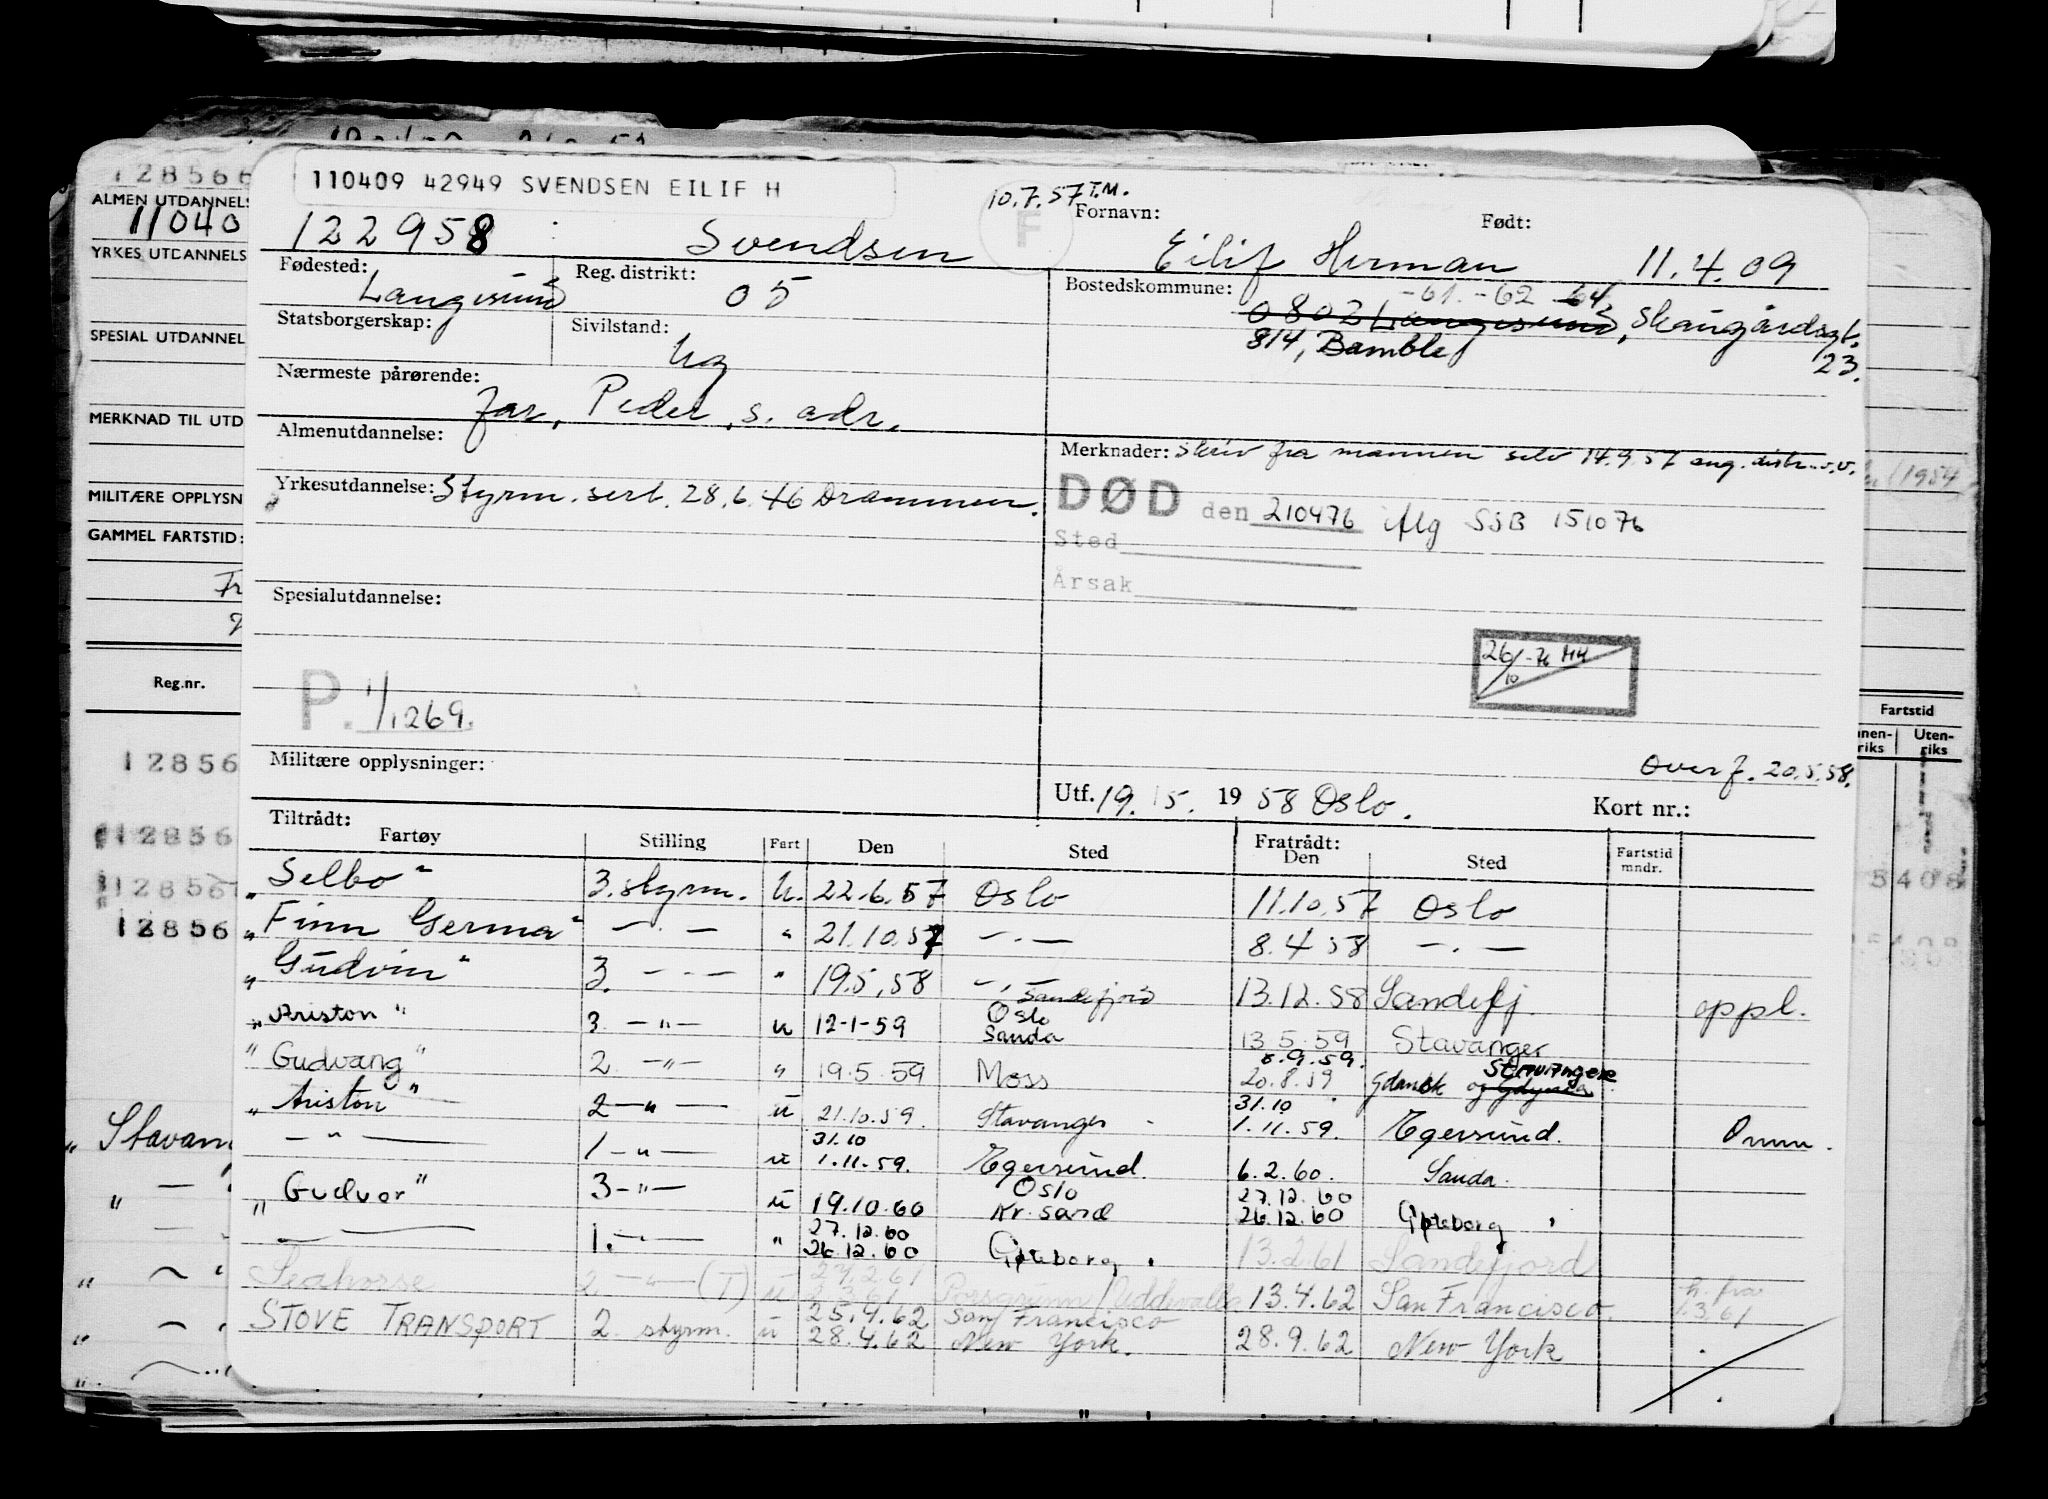 128566
ALMEN UTDANNELS
11040
YRKES UTDANNELS
SPESIAL UTDANNEL
MERKNAD TIL UTD
MILITÆRE OPPLYSN
GAMMEL FARTSTID:
Reg.nr.
12856
12856
12856
12856
" Stavan
110409 42949 SVENDSEN EILIF H
10.7.57 T.M.
F
Fornavn: Født:
122958 Svendsen Eilif Herman 11.4.09
Fødested: Langesund Reg. distrikt: 05 Bostedskommune: -61. -62 -64
0802 Langesund, Skaugårdsgt. 23.
814, Bamble
Statsborgerskap: Sivilstand: Ug
Nærmeste pårørende: far, Peder, s. adr.
Almenutdannelse:
Merknader: Skriv fra mannen selv 14.9.57 ang. distr. v.v.
Yrkesutdannelse: Styrm. sert. 28.6.46 Drammen.
DØD den 210476 iflg SjB 151076
Sted
Årsak
Spesialutdannelse:
26/10-76 MH
P. 1/1269.
Militære opplysninger:
Overf. 20.5.58.
Utf. 19.5. 1958 Oslo. Kort nr.:
Tiltrådt: Fratrådt:
Fartøy Stilling Fart Den Sted Den Sted Fartstid mndr.
"Selbo" 3. styrm. U. 22.6.57 Oslo 11.10.57 Oslo
"Finn Germa" — . — " 21.10.57 — . — 8.4.58 — . —
"Gudvin" 3. — . — " 19.5.58 — . — 13.12.58 Sandefj. oppl.
Sandefjord
"Ariston" 3. — " — u 12-1-59 Oslo Sanda 13.5.59 Stavanger
8.9.59. Stavanger
"Gudvang" 2. — " — " 19.5.59 Moss 20.8.59 Gdansk og Gdynia
31.10
"Ariston" 2 — " — u 21.10.59. Stavanger 1.11.59. Egersund. Omm.
31.10
— " — 1 — " — u 1.11.59. Egersund. 6.2.60. Sanda.
Oslo 27.12.60
"Gudvor" 3 — " — u 19.10.60 Kr. sand 26.12.60 Gøteborg
27.12.60
— 1. — " — " 26.12.60 Gøteborg. 13.2.61 Sandefjord
27.2.61
Seahorse 2. — " — (T) u 1.3.61 Porsgrunn/Uddevalla 13.4.62 San Francisco h. fra 1.3.61
25.4.62 San Francisco
STOVE TRANSPORT 2. styrm. u 28.4.62 New York. 28.9.62 New York
(1954
Fartstid
Uten-
riks
5408